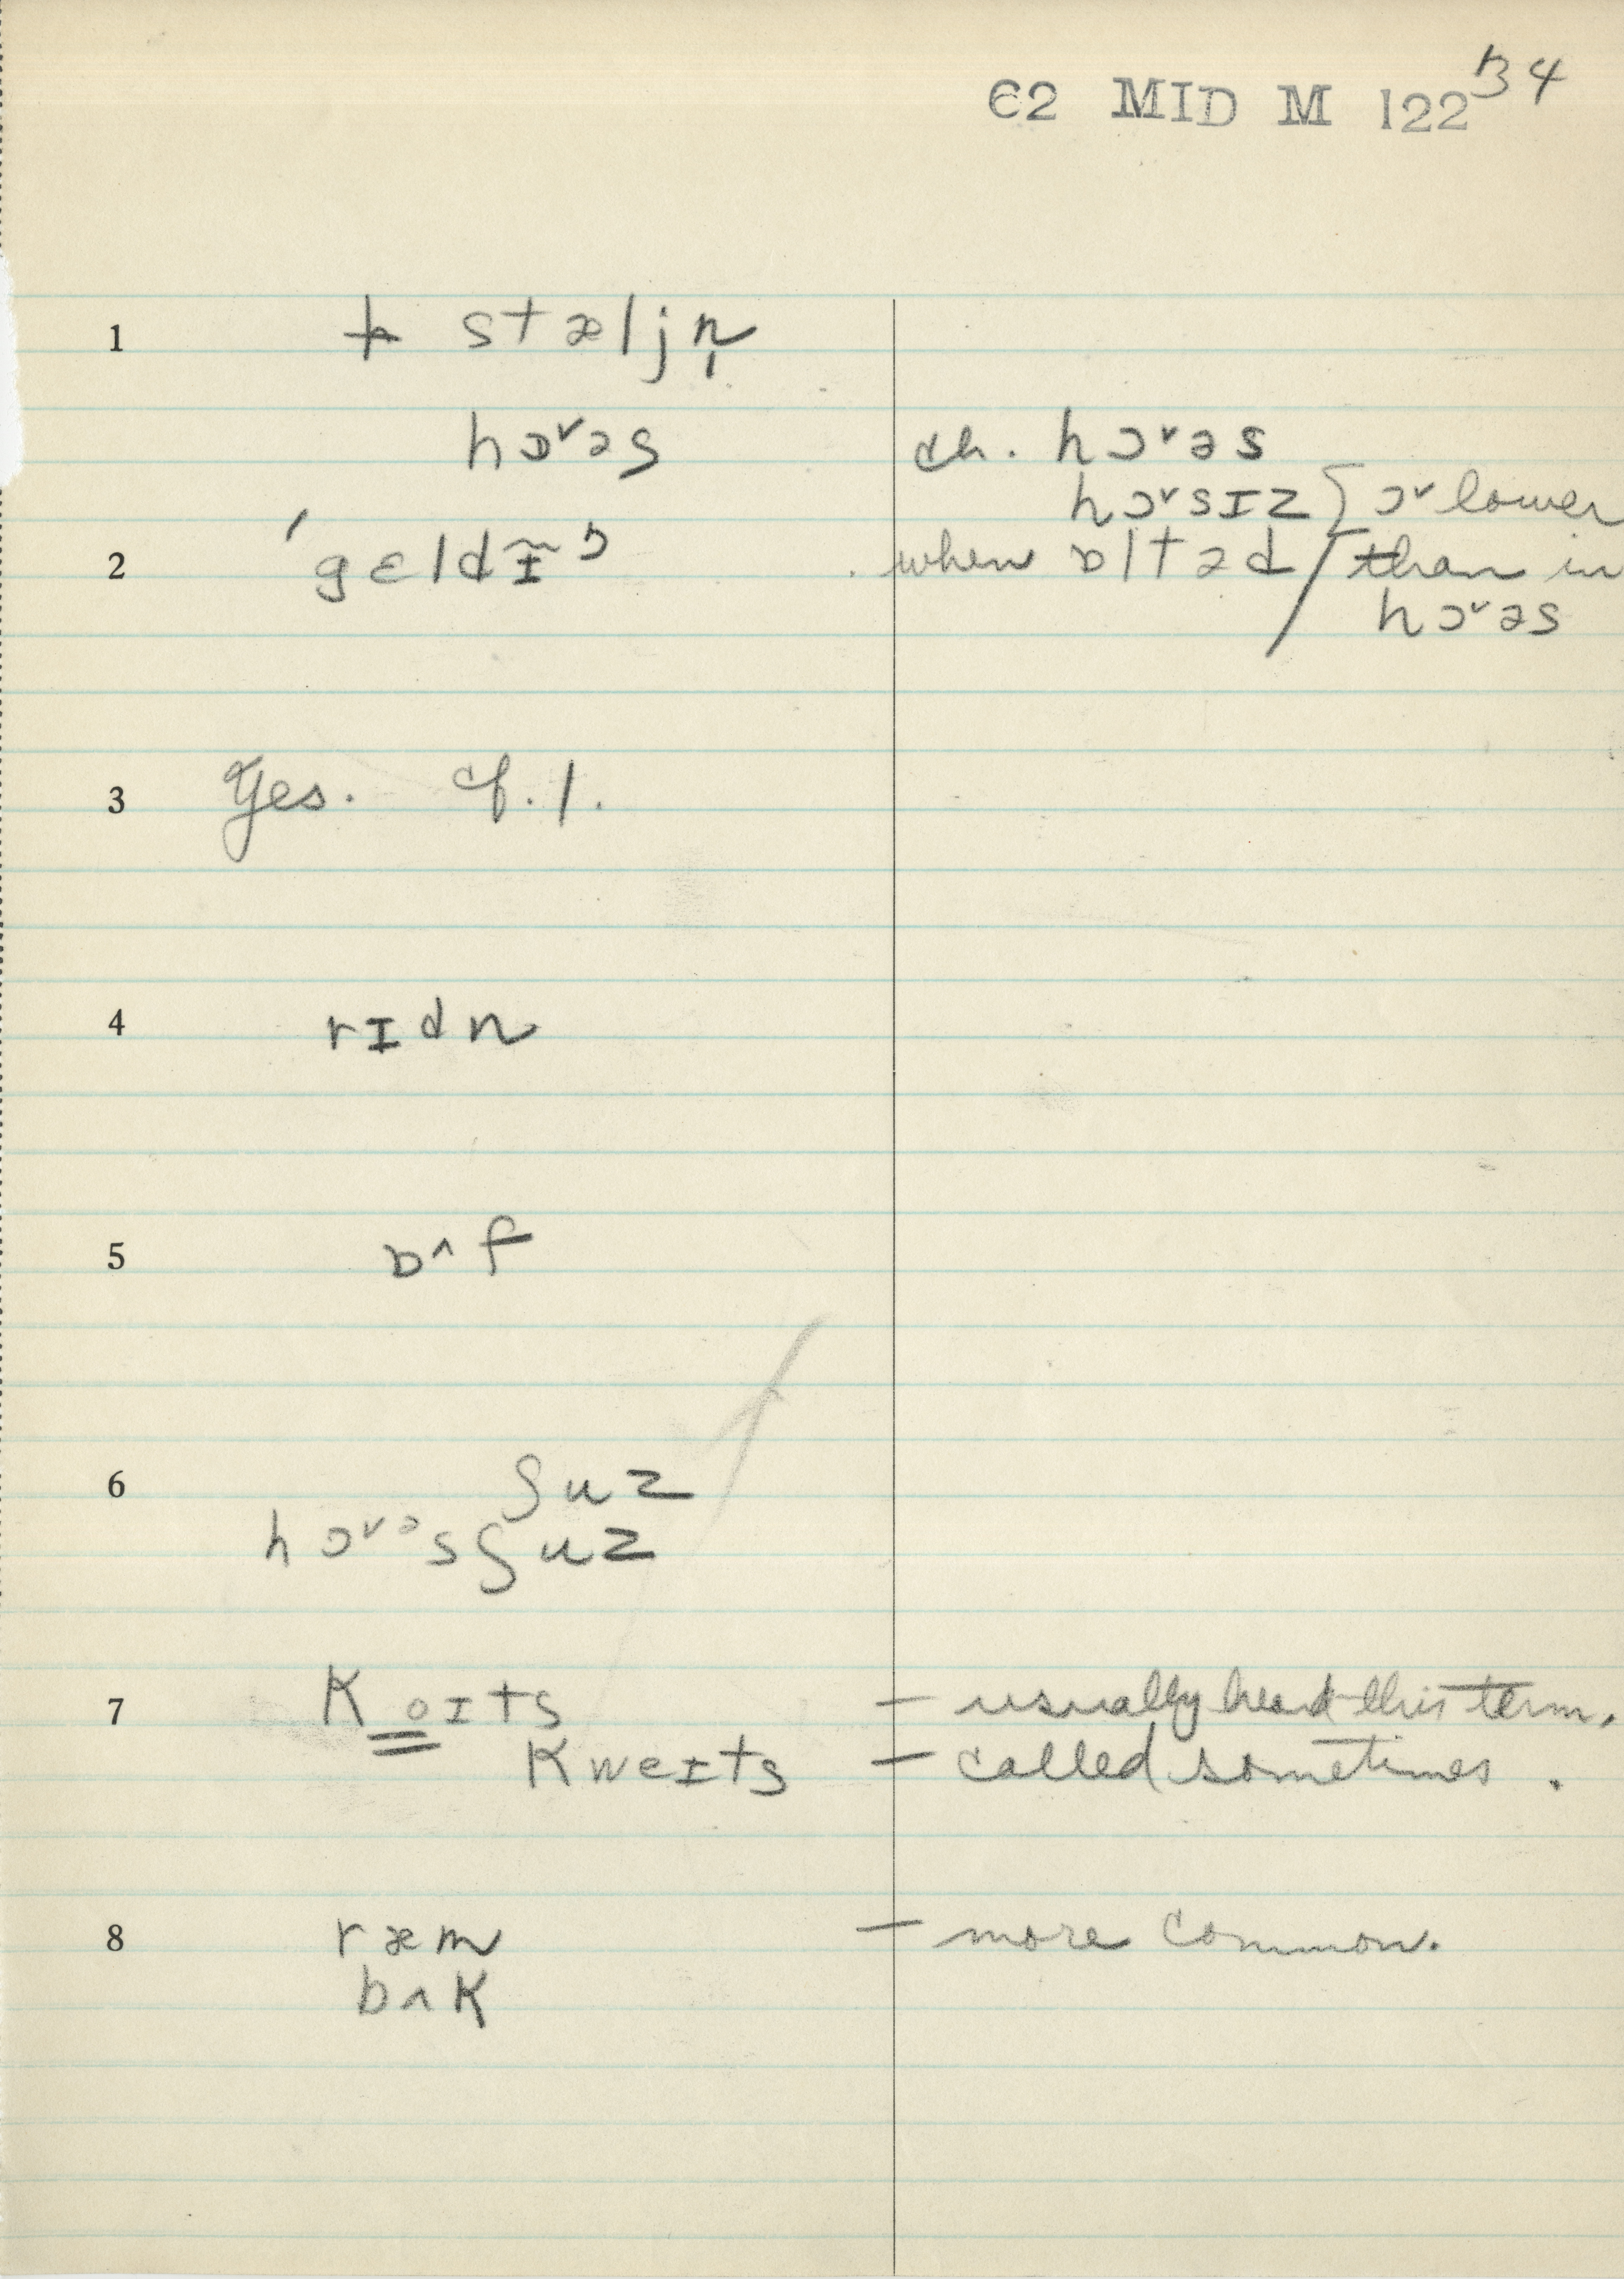 62 MID M 122 34
1 stæljn̩
hɔ˅əs ch. hɔ˅əs
hɔ˅sɪz { ɔ˅ lower
2 ˈgɛldɪ̃ŋ when ɒltəd / than in
hɔ˅əs
3 Yes. cf. 1.
4 rɪdn
5 bʌf
6 ʃuz
hɔ˅əsʃuz
7 koɪts – usually heard this term.
kweɪts – called sometimes.
8 ræm – more common.
bʌk